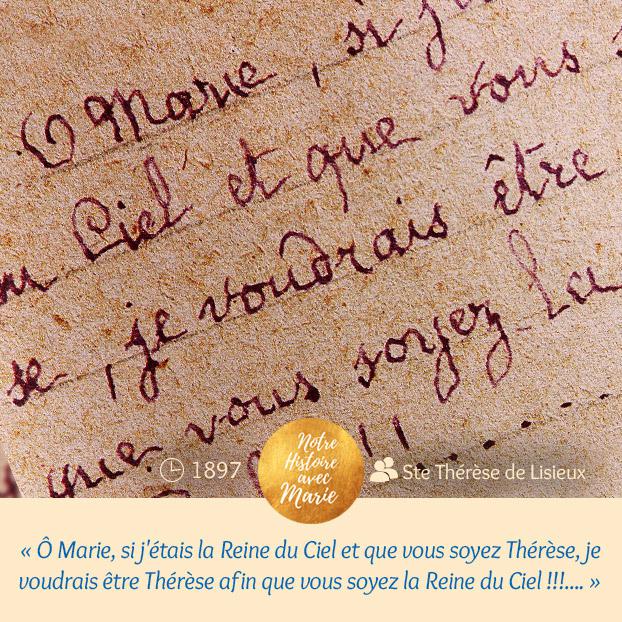 O Marie, si j'
Ciel et que vous s
se, je voudrais être
que vous soyez la
1897
Notre
Histoire
avec
Marie
Ste Thérèse de Lisieux
« Ô Marie, si j'étais la Reine du Ciel et que vous soyez Thérèse, je
voudrais être Thérèse afin que vous soyez la Reine du Ciel !!!.... »